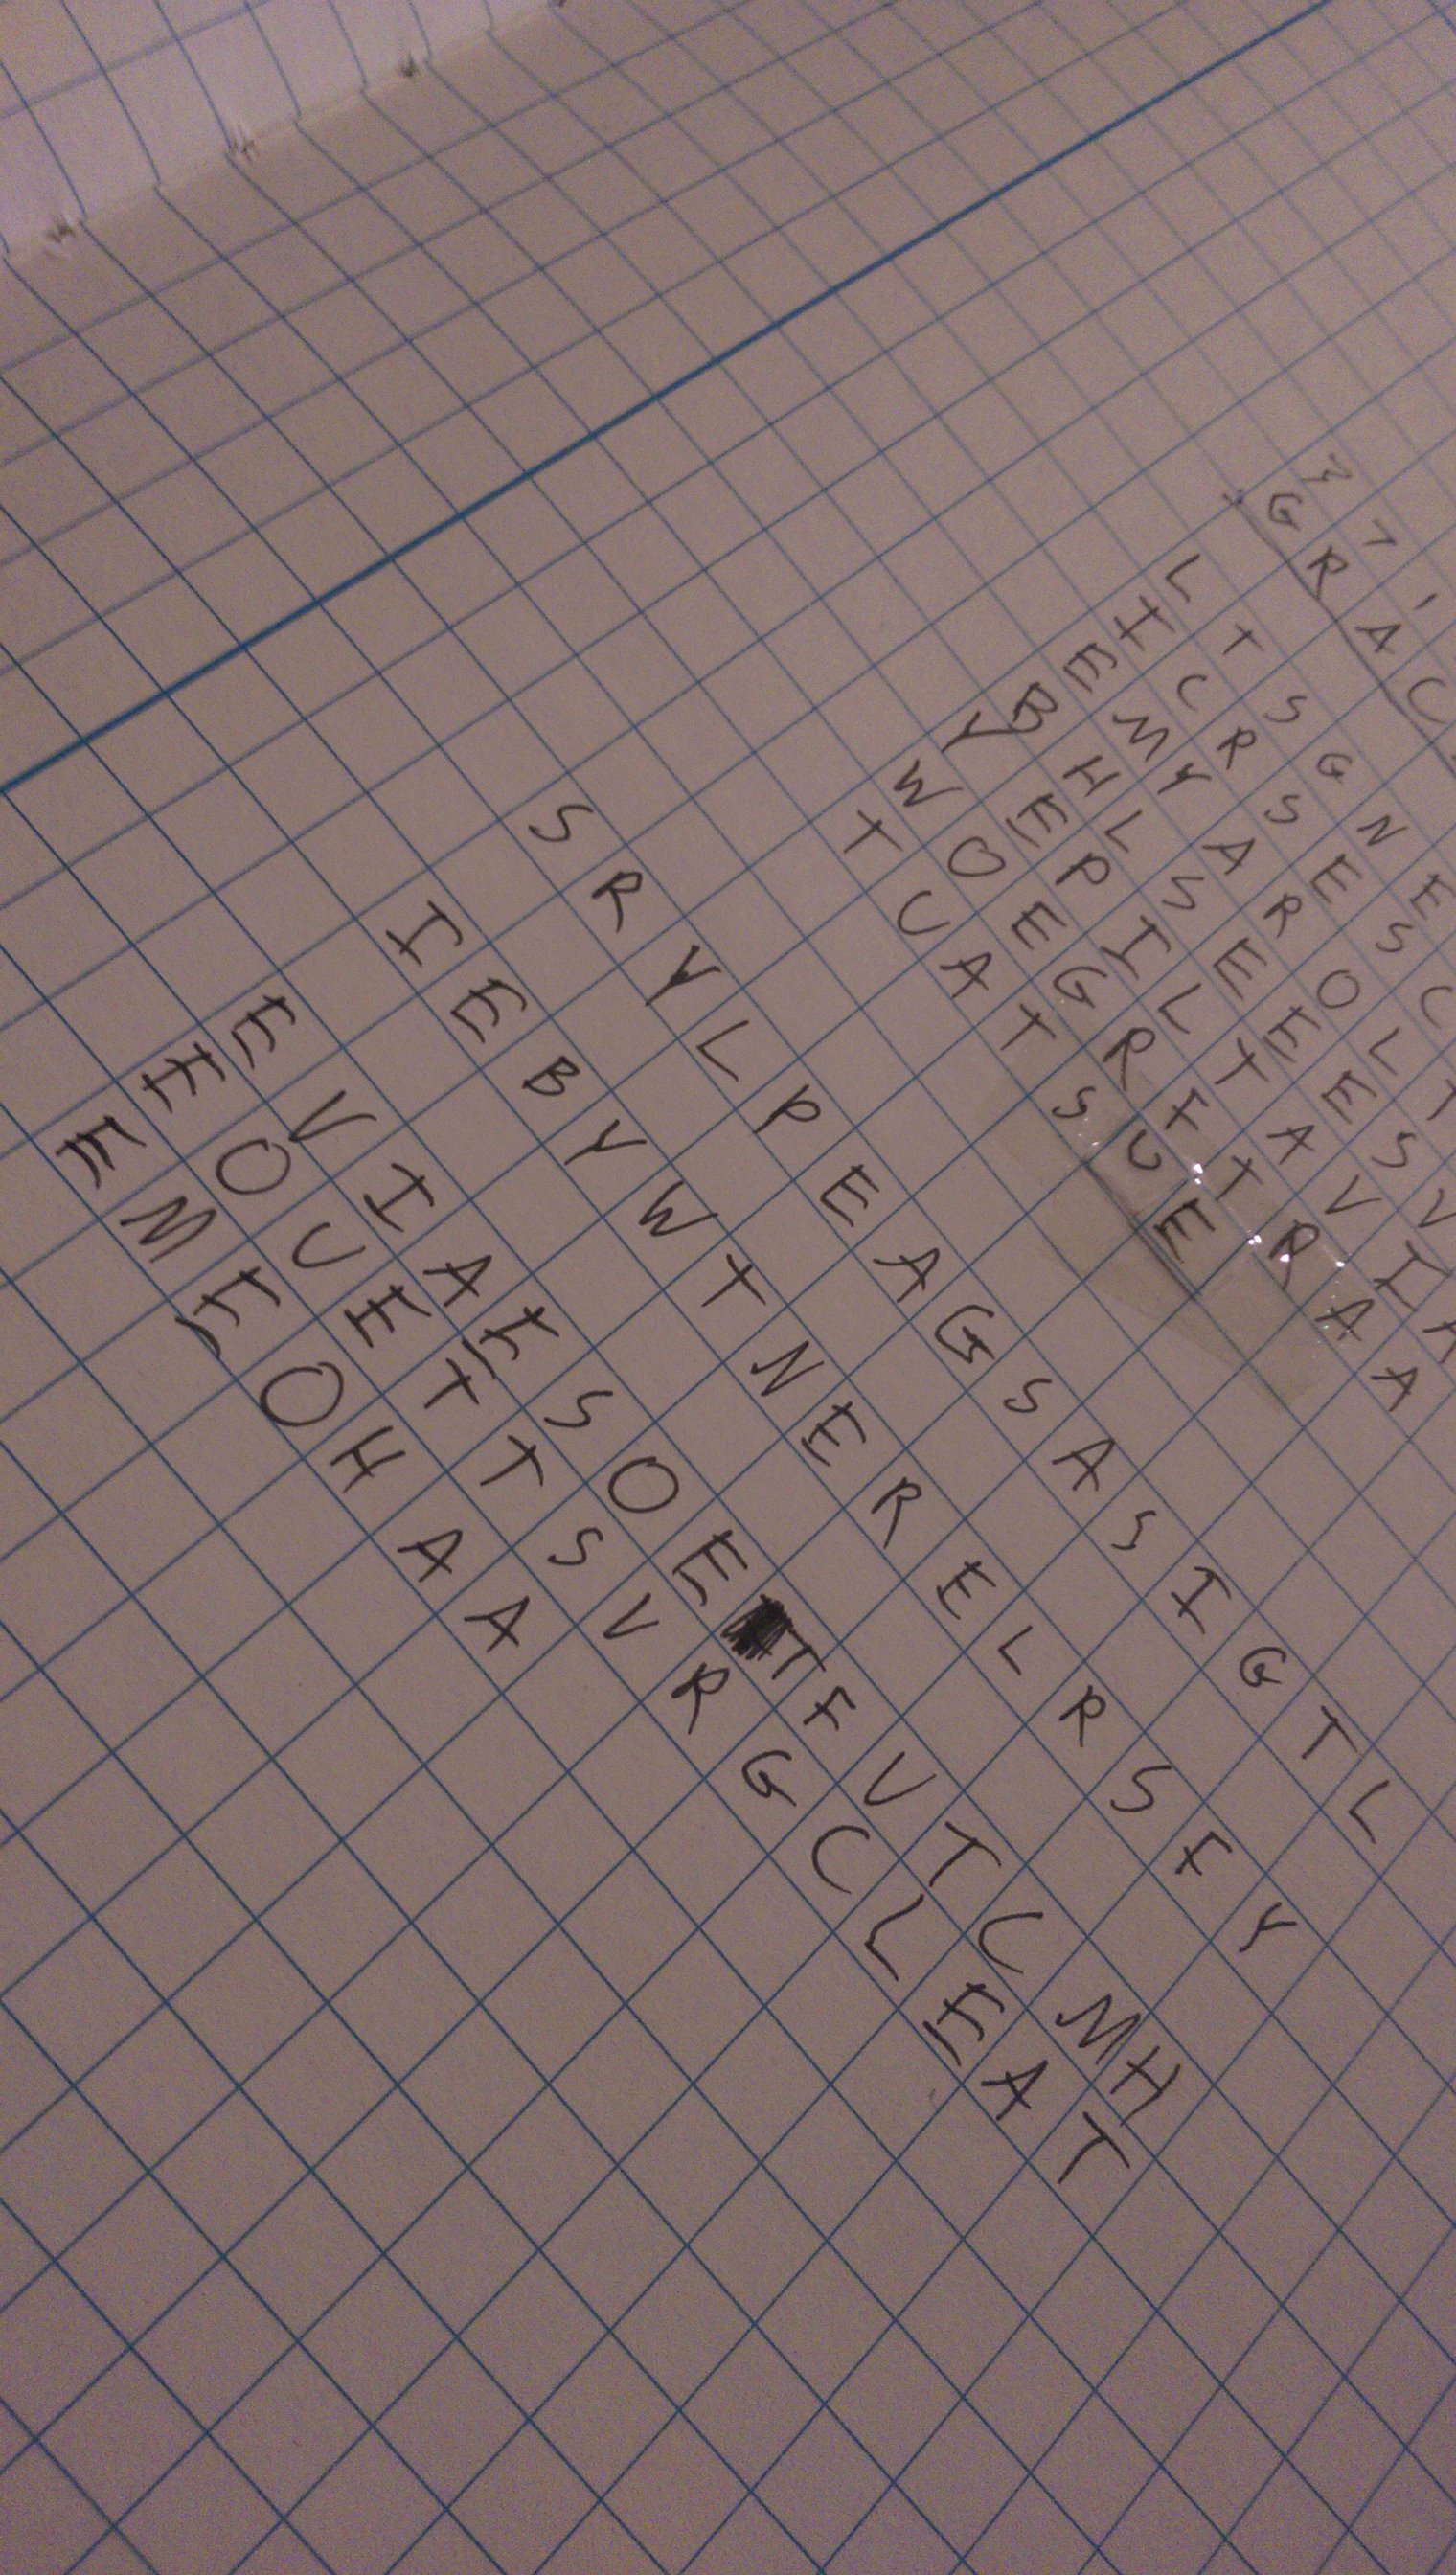 G R A C
L T S G N E
H C R S E S C
E M Y A R O L
B H L S E E E S V
Y E P I L T A V I
W O E G R F T R A A
T U A T S U E
S R Y L P E A G S A S I G T L
I E B Y W T N E R E L R S F Y
E V I A E S O E T F V T C M H
E O U E T T S V R G C L E A T
E M E O H A A